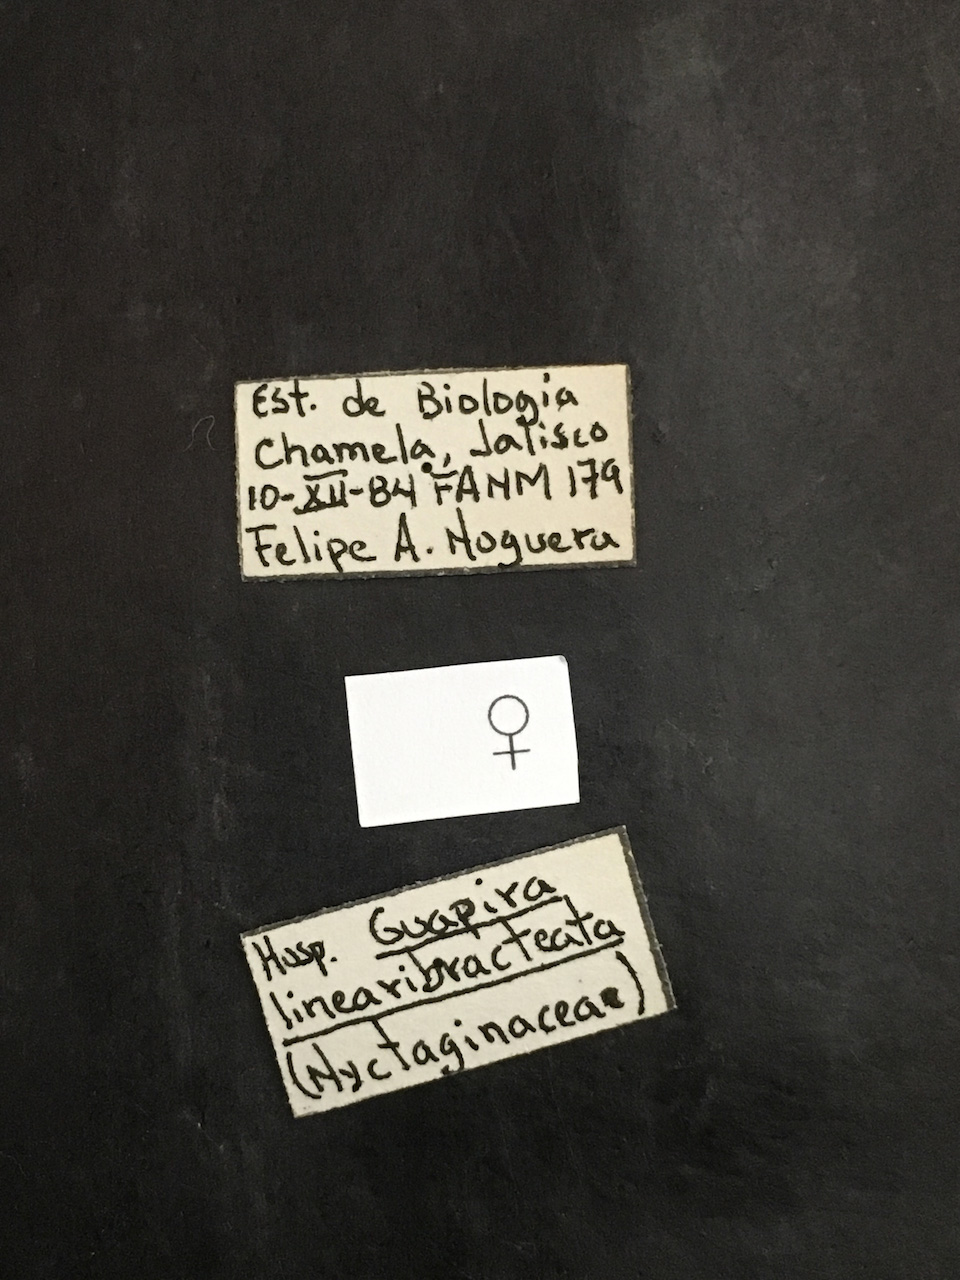 Est. de Biología
Chamela, Jalisco
10-XII-84 FANM 179
Felipe A. Noguera
♀
Hosp. Guapira
linearibracteata
(Nyctaginaceae)